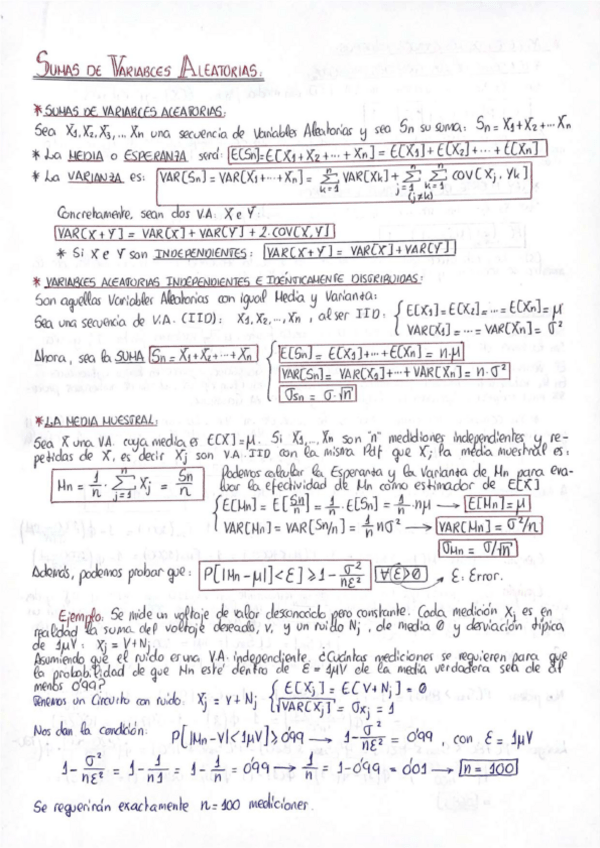 SUMAS DE VARIABLES ALEATORIAS.
* SUMAS DE VARIABLES ALEATORIAS:
Sea X1, X2, X3, ... Xn una secuencia de Variables Aleatorias y sea Sn su suma: Sn = X1+X2+...Xn
* La MEDIA o ESPERANZA será: E[Sn]=E[X1+X2+...+Xn] = E[X1]+E[X2]+...+E[Xn]
* La VARIANZA es: VAR[Sn] = VAR[X1+...+Xn] = Σ(k=1..n) VAR[Xk] + Σ(j=1..n) Σ(k=1..n) COV[Xj, Yk] (j≠k)
Concretamente, sean dos V.A. X e Y
VAR[X+Y] = VAR[X] + VAR[Y] + 2·COV[X,Y]
* Si X e Y son INDEPENDIENTES: VAR[X+Y] = VAR[X]+VAR[Y]
* VARIABLES ALEATORIAS INDEPENDIENTES E IDÉNTICAMENTE DISTRIBUIDAS:
Son aquellas Variables Aleatorias con igual Media y Varianza:
Sea una secuencia de V.A. (IID): X1, X2, ..., Xn, al ser IID: { E[X1]=E[X2]=...=E[Xn]=μ
VAR[X1]=...=VAR[Xn]=σ²
Ahora, sea la SUMA Sn = X1+X2+...+Xn { E[Sn] = E[X1]+...+E[Xn] = n·μ
VAR[Sn] = VAR[X1]+...+VAR[Xn] = n·σ²
σSn = σ·√n
* LA MEDIA MUESTRAL:
Sea X una V.A. cuya media es E[X]=μ. Si X1,...Xn son "n" mediciones independientes y re-
petidas de X, es decir Xj son V.A. IID con la misma Pdf que X; la media muestral es:
Mn = 1/n · Σ(j=1..n) Xj = Sn/n
Podemos calcular la Esperanza y la Varianza de Mn para eva-
luar la efectividad de Mn como estimador de E[X]
{ E[Mn] = E[Sn/n] = 1/n · E[Sn] = 1/n · nμ → E[Mn]=μ
VAR[Mn] = VAR[Sn/n] = 1/n nσ² → VAR[Mn] = σ²/n
σMn = σ/√n
Además, podemos probar que: P[|Mn-μ|<ε] ≥ 1 - σ²/nε² ∀ε>0 → ε: Error.
Ejemplo: Se mide un voltaje de valor desconocido pero constante. Cada medición Xj es en
realidad la suma del voltaje deseado, v, y un ruido Nj, de media 0 y desviación típica
de 1μV: Xj = V+Nj.
Asumiendo que el ruido es una V.A. independiente ¿Cuántas mediciones se requieren para que
la probabilidad de que Mn esté dentro de ε = 1μV de la media verdadera sea de al
menos 0'99?
Tenemos un Circuito con ruido: Xj = V + Nj { E[Xj] = E[V+Nj] = 0
√VAR[Xj] = σXj = 1
Nos dan la condición:
P[|Mn-V|<1μV] ≥ 0'99 → 1 - σ²/nε² = 0'99, con ε = 1μV
1 - σ²/nε² = 1 - 1/n1 = 1 - 1/n = 0'99 → 1/n = 1-0'99 = 0'01 → n = 100
Se requerirán exactamente n=100 mediciones.